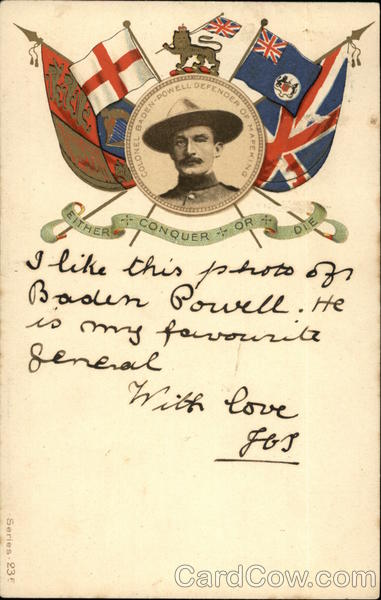 COLONEL BADEN-POWELL DEFENDER OF MAFEKING
EITHER CONQUER OR DIE
I like this photo of
Baden Powell. He
is my favourite
general
With love
Series 23
CardCow.com